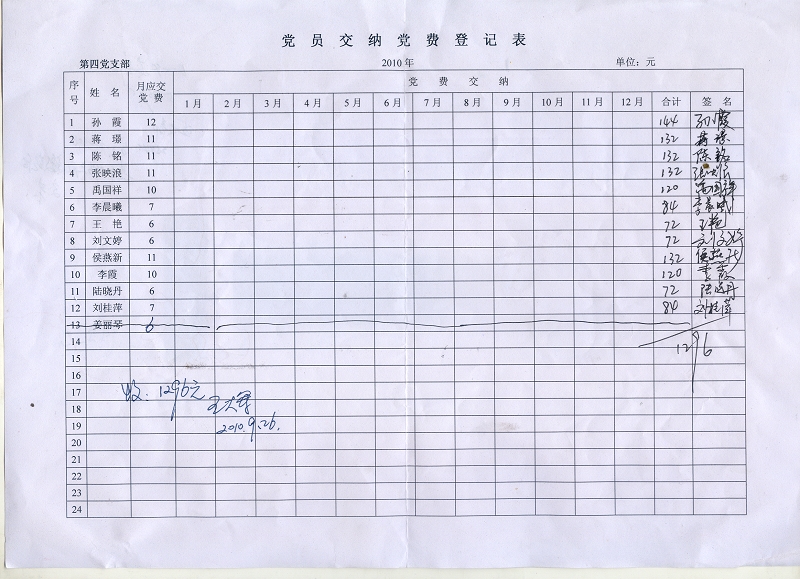 党员交纳党费登记表
第四党支部 2010年 单位：元
序号 姓名 月应交党费 党费交纳 合计 签名
1月 2月 3月 4月 5月 6月 7月 8月 9月 10月 11月 12月
1 孙霞 12 144 孙霞
2 蒋璟 11 132 蒋璟
3 陈铭 11 132 陈铭
4 张映浪 11 132 张映浪
5 禹国祥 10 120 禹国祥
6 李晨曦 7 84 李晨曦
7 王艳 6 72 王艳
8 刘文婷 6 72 刘文婷
9 侯燕新 11 132 侯燕新
10 李霞 10 120 李霞
11 陆晓丹 6 72 陆晓丹
12 刘桂萍 7 84 刘桂萍
13 姜丽琴 6
14 1296
15
16
17 收：1296元
18
19 2010.9.26.
20
21
22
23
24